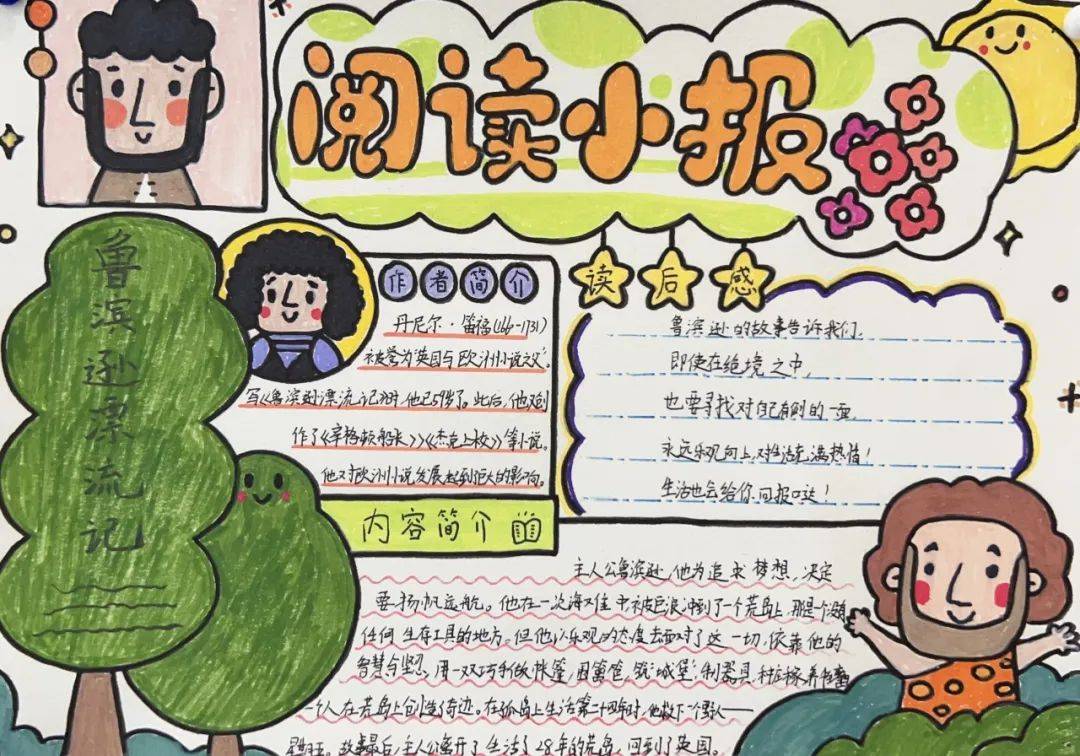 阅读小报
鲁滨逊漂流记
作者简介
丹尼尔·笛福(166-1731)
被誉为"英国与欧洲小说之父"。
写《鲁滨逊漂流记》时,他已59岁了。此后,他又创
作了《辛格顿船长》《杰克上校》等小说。
他对欧洲小说发展起到巨大的影响。
读后感
鲁滨逊的故事告诉我们,
即使在绝境之中,
也要寻找对自己有利的一面,
永远乐观向上,对生活充满热情!
生活也会给你回报哒!
内容简介
主人公鲁滨逊,他为追求梦想,决定
要扬帆远航。他在一次海难中被巨浪冲到了一个荒岛上,那是个没有
任何生存工具的地方。但他以乐观的态度去面对了这一切,依靠他的
智慧与坚忍,用一双巧手做帐篷,围篱笆,筑"城堡",制器具,种植
一个人在荒岛上创造奇迹。在孤岛上生活第二十四年时,他救下一个野人——
故事最后,主人公离开了生活了28年的荒岛,回到了英国。